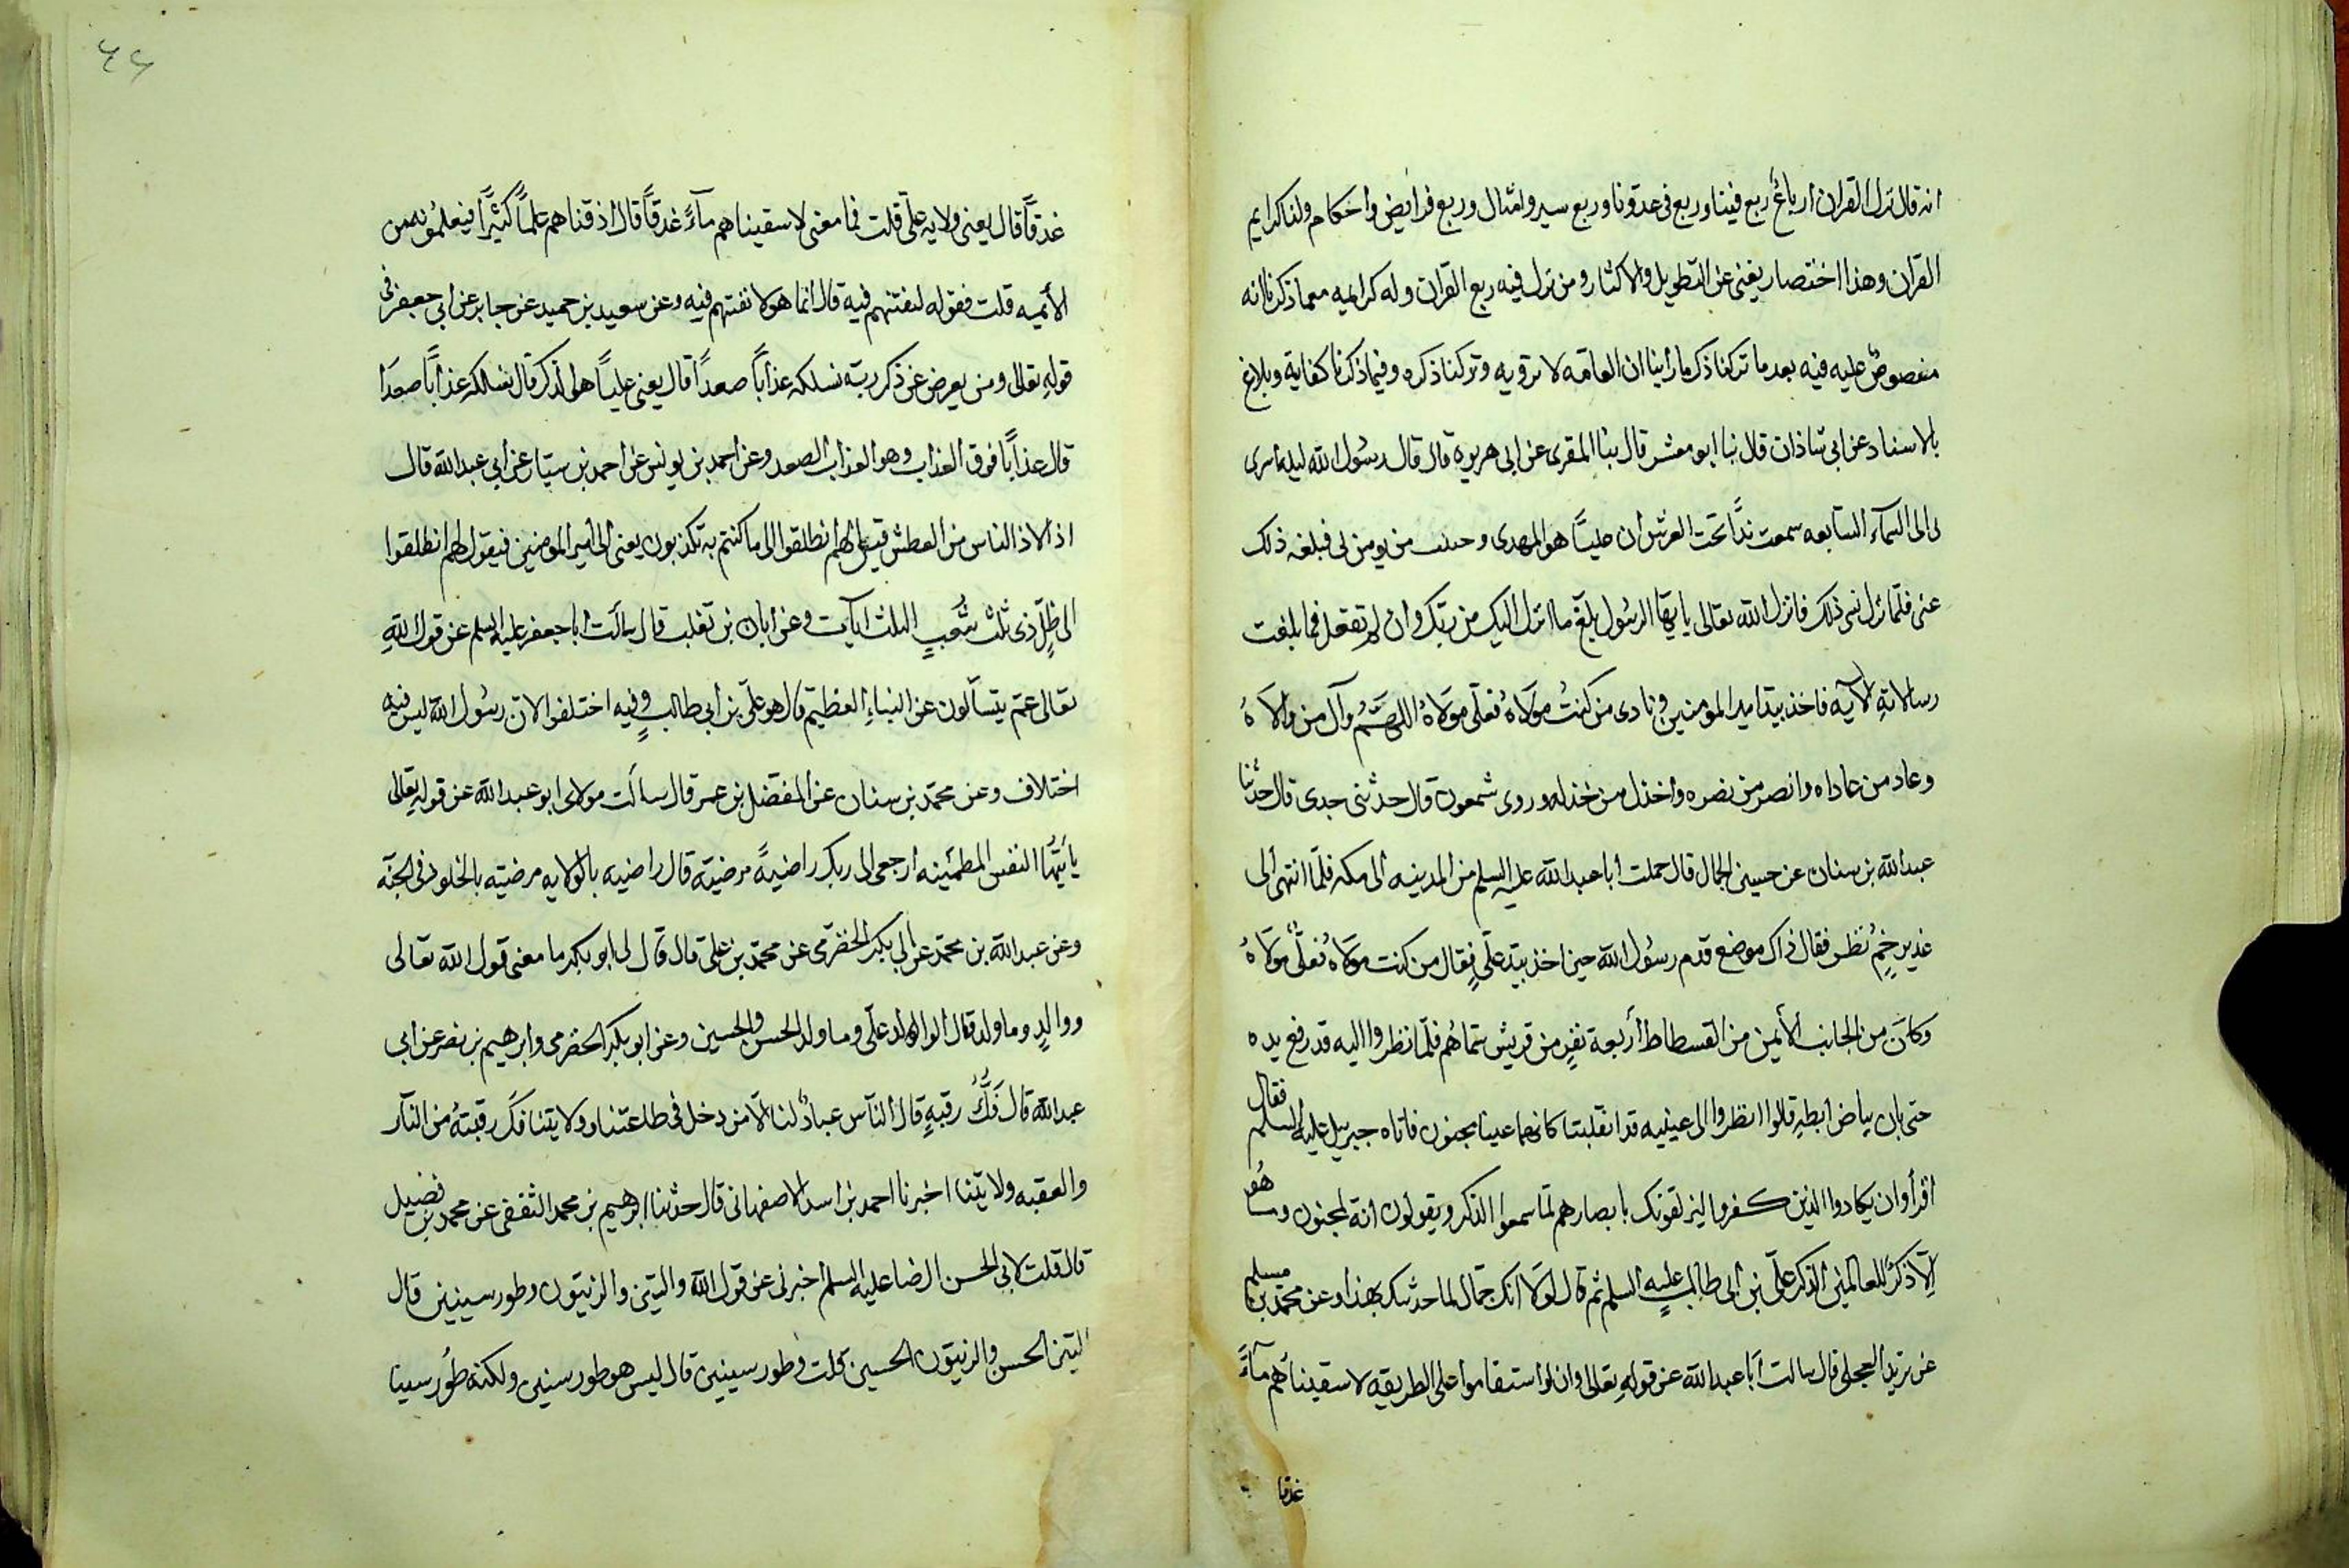 انه قال نزل القران ارباعٌ ربع فينا وربع فى عدونا وربع سير وامثال وربع فرايض واحكام ولنا كرايم
القران وهذا اختصار يغنى عن التطويل والاكثار ومن نزل فيه ربع القران وله كرايمه مما ذكرنا انه
منصوصٌ عليه فيه بعد ما تركنا ذكر ما راينا ان العامه لا ترويه وتركنا ذكره وفيما ذكرنا كفاية وبلاغ
بالاسناد عن ابى شاذان قال نبا ابو معشر قال نبنا المقرى عن ابى هريره قال قال رسُول الله ليله اسرى
لى الى السماء السابعه سمعت نداً تحت العرش ان علياً هو المهدى و من يومن بى فبلغه ذلك
عنى فلما نزل نسى ذلك فانزل الله تعالى يا ايها الرسُول بلغ ما انزل اليك من ربك وان لم تفعل فما بلغت
رسالاتهِ الآيه فاخذ بيد امير المومنين ونادى من كنتُ مولاهُ فعلى مولاهُ اللهم وآل من والاهُ
وعاد من عاداه وانصر من نصره واخذل من خذله وروى شمعون قال حدثنى جدى قال حدثنا
عبد الله بن سنان عن حسين الجمال قال حملت ابا عبد الله عليه السلم من المدينه الى مكه فلما انتهى الى
غدير خمٍ نظر فقال ذاك موضع قدم رسُول الله حين اخذ بيد علىٍ فقال من كنت مولاه فعلىٌ مولاهُ
وكان من الجانب الأيمن من الفسطاط أربعة نفرٍ من قريش سماهُم فلما نظروا اليه قد رفع يده
حتى بان بياض ابطيه قالوا انظروا الى عينيه قد انقلبتا كانهما عينا مجنون فاتاه جبريل عليه السلم فقال
اقرأ وان يكادوا الذين كفروا ليزلقونك بابصارهم لما سمعوا الذكر ويقولون انه لمجنون وما هُو
الا ذكرٌ للعالمين الذكر على بن ابى طالب عليه السلم ثم قال لولا انك جمال لما حدثتك بهذا وعن محمد بن مسلم
عن بريد العجلى قال سالت ابا عبد الله عن قولهِ تعالى وان لو استقاموا على الطريقه لاسقيناهم مآءً
غدقا
٤٦
غدقاً قال يعنى ولايه على قلت فما معنى لاسقيناهم مآءً غدقاً قال اذقناهم علماً كثيراً فيعلمُونه من
الأئميه قلت فقوله لنفتنهم فيه قال انما هو لا نفتنهم فيه وعن سعيد بن حميد عن جابر عن ابى جعفر فى
قولهِ تعالى ومن يعرض عن ذكر ربه نسلكه عذاباً صعداً قال يعنى علياً هو الذكر قال نسلكه عذاباً صعدا
قال عذاباً فوق العذاب وهو العذاب الصعد وعن احمد بن يونس عن احمد بن سيار عن ابى عبد الله قال
اذا لاذ الناس من العطش قيل لهم انطلقوا الى ما كنتم به تكذبون يعنى الى امير المومنين فيقول لهم انطلقوا
الى ظلٍ ذى ثلث شُعبٍ الثلث الآيات وعن ابان بن تغلب قال سالت ابا جعفر عليه السلم عن قول اللهِ
تعالى عمّ يتسآلون عن النباءِ العظيم قال هو على بن ابى طالب وفيه اختلفوا لان رسُول الله ليس فيه
اختلاف وعن محمد بن سنان عن المفضل بن عمر قال سالت مولاى ابو عبد الله عن قوله تعالى
يا ايتها النفس المطمئينه ارجعى الى ربك راضيةً مرضية قال راضيه بالولايه مرضيه بالخلود فى الجنه
وعن عبد الله بن محمد عن ابى بكر الحضرمى عن محمد بن على قال قال لى ابو بكر ما معنى قول الله تعالى
ووالدٍ وما ولد قال الوالد على وما ولد الحسن والحسين وعن ابو بكر الحضرمى وابرهيم بن نصر عن ابى
عبد الله قال فكُّ رقبهٍ قال الناس عبادٌ لنا الا من دخل فى طاعتنا وولايتنا فك رقبتهُ من النآر
والعقبه ولايتنا اخبرنا احمد بن اسد الاصفهانى قال حدثنا ابرهيم بن محمد الثقفى عن محمد بن فضيل
قال قلت لابى الحسن الرضا عليه السلم اخبرنى عن قول الله والتين والزيتون وطور سينين قال
التين الحسن والزيتون الحسين قلت وطور سينين قال ليس هو طور سنين ولكنه طُور سينا